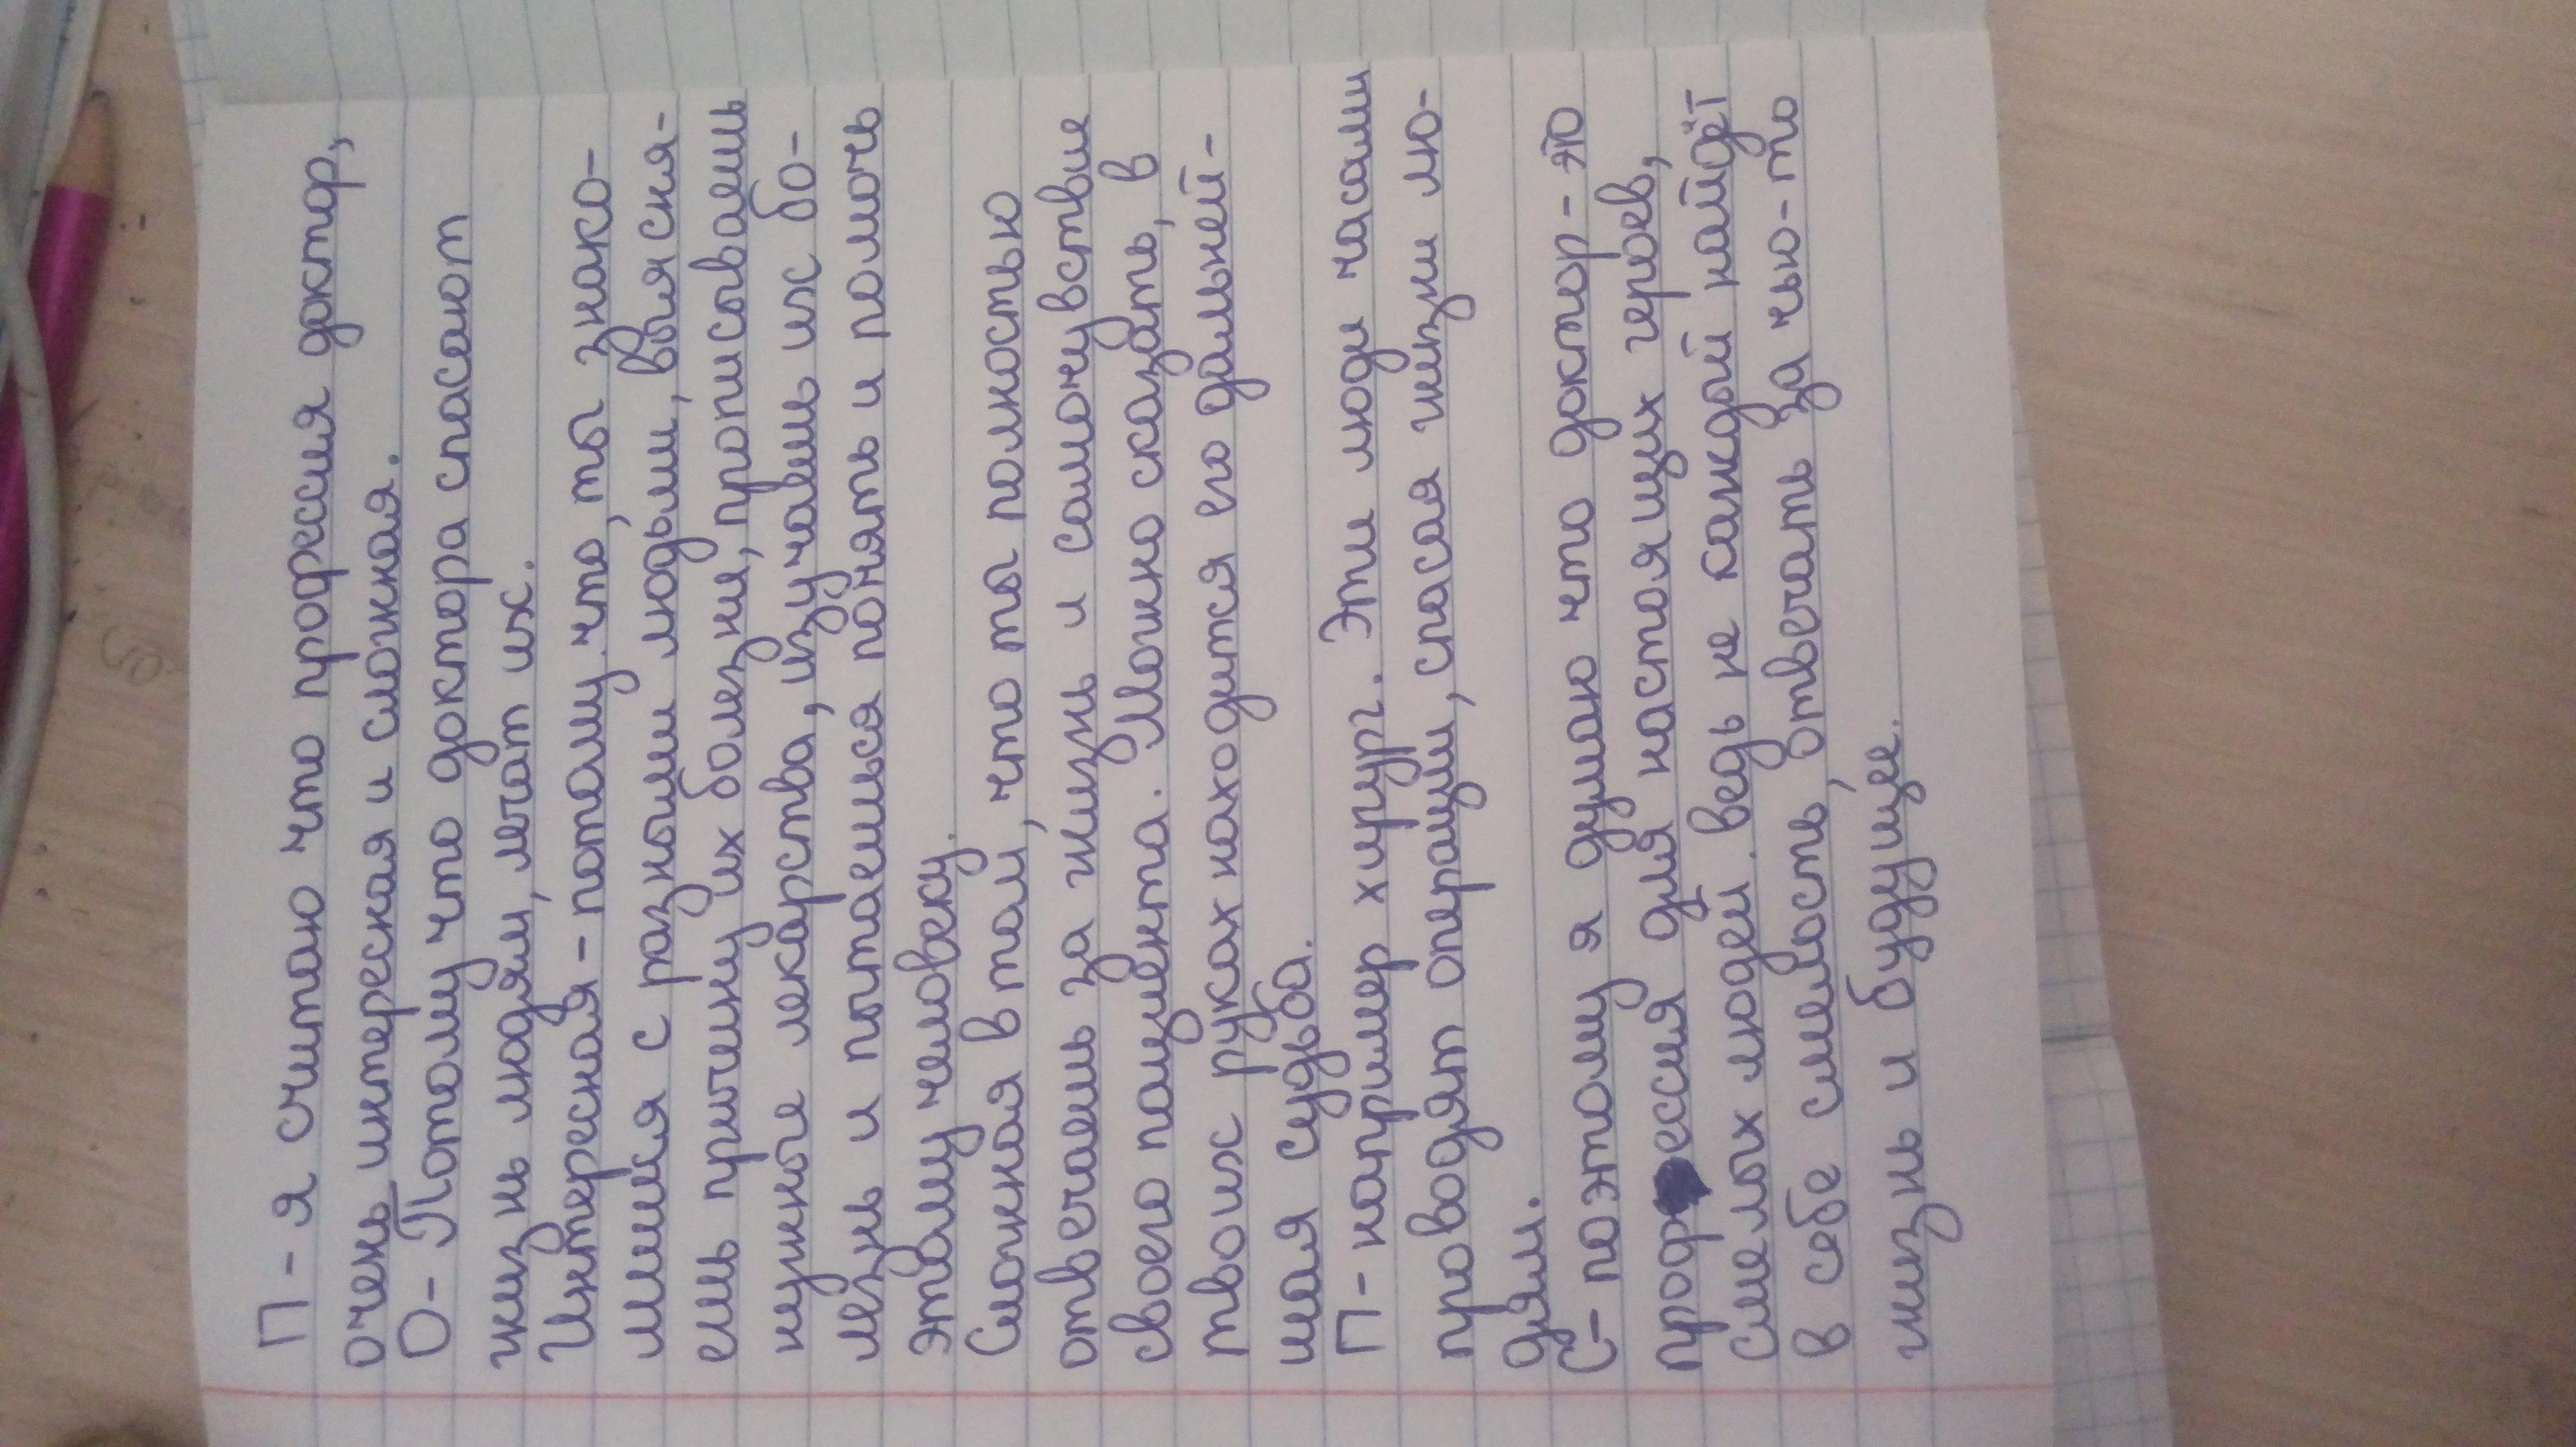 П - я считаю что профессия доктор,
очень интереская и сложная.
О - Потому что доктора спасают
жизнь людям, лечат их.
Интересная - потому что, ты знако-
мишся с разными людьми, выясня-
ешь причину их болезни, прописоваешь
нужное лекарства, изучаешь их бо-
лезнь и пытаешься понять и помочь
этому человеку.
Сложная в том, что ты полностью
отвечаешь за жизнь и самочувствие
своего пациента. Можно сказать, в
твоих руках находится его дальней-
шая судьба.
П - например хирург. Эти люди часами
проводят операции, спасая жизни лю-
дям.
С - поэтому я думаю что доктор - это
профессия для настоящих героев,
смелых людей. ведь не каждый найдёт
в себе смелость, отвечать за чью-то
жизнь и будущее.